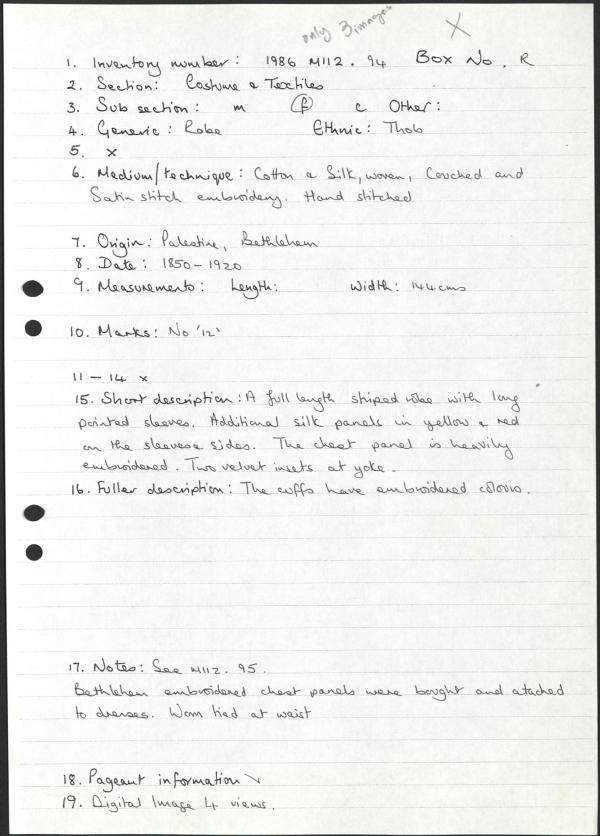 only 3 images
X
1. Inventory number: 1986 M112. 94 Box No. R
2. Section: Costume & Textiles
3. Sub section: m f c Other:
4. Generic: Robe Ethnic: Thob
5. x
6. Medium/technique: Cotton & Silk, woven, Couched and
Satin stitch embroidery. Hand stitched
7. Origin: Palestine, Bethlehem
8. Date: 1850-1920
9. Measurements: Length: Width: 144cms
10. Marks: No '12'
11 - 14 x
15. Short description: A full length striped robe with long
pointed sleeves. Additional silk panels in yellow & red
on the sleeves & sides. The chest panel is heavily
embroidered. Two velvet insets at yoke.
16. Fuller description: The cuffs have embroidered colours.
17. Notes: See M112. 95.
Bethlehem embroidered chest panels were bought and atached
to dresses. Worn tied at waist
18. Pageant information
19. Digital Image 4 views.